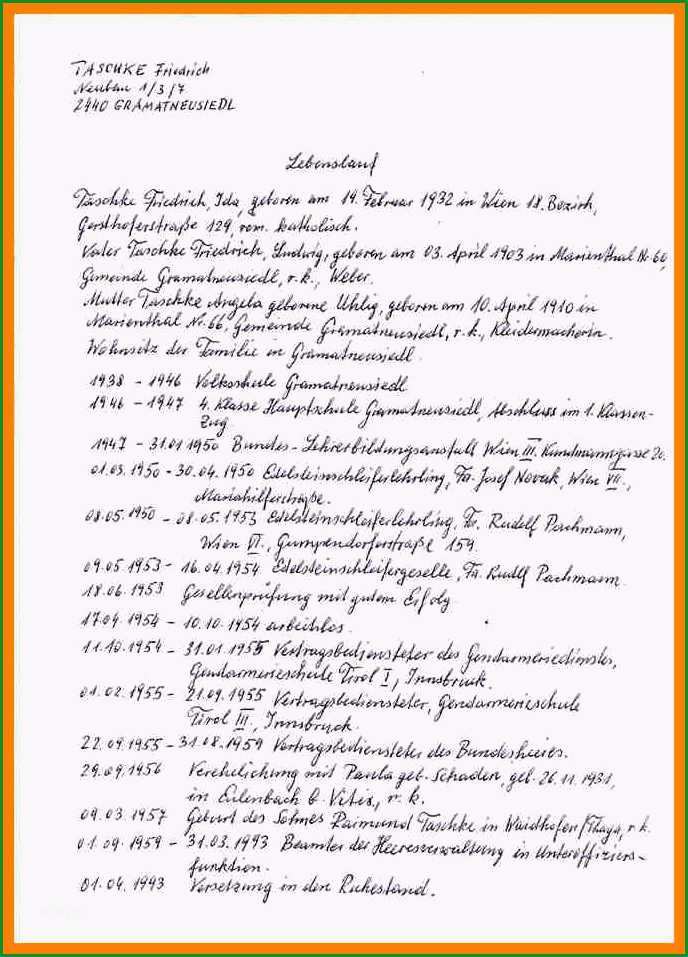 TASCHKE Friedrich
Neubau 1/3/7
2440 GRAMATNEUSIEDL
Lebenslauf
Taschke Friedrich, Ida, geboren am 14. Februar 1932 in Wien 18. Bezirk,
Gersthoferstraße 129, röm. katholisch.
Vater Taschke Friedrich, Ludwig, geboren am 03. April 1903 in Marienthal Nr. 60,
Gemeinde Gramatneusiedl, r. k., Weber.
Mutter Taschke Angela geborene Uhlig, geboren am 10. April 1910 in
Marienthal Nr. 66, Gemeinde Gramatneusiedl, r. k., Kleidermacherin.
Wohnsitz der Familie in Gramatneusiedl.
1938 - 1946 Volksschule Gramatneusiedl
1946 - 1947 4. Klasse Hauptschule Gramatneusiedl, Abschluss im 1. Klassen-
Zug
1947 - 31.01.1950 Bundes-Lehrerbildungsanstalt Wien III. Kundmanngasse 20.
01.03.1950 - 30.04.1950 Edelsteinschleiferlehrling, Fa. Josef Novak, Wien VII.,
Mariahilferstraße.
08.05.1950 - 08.05.1953 Edelsteinschleiferlehrling, Fa. Rudolf Pachmann,
Wien VI., Gumpendorferstraße 159.
09.05.1953 - 16.04.1954 Edelsteinschleifergeselle, Fa. Rudolf Pachmann.
18.06.1953 Gesellenprüfung mit gutem Erfolg.
17.04.1954 - 10.10.1954 arbeitslos.
11.10.1954 - 31.01.1955 Vertragsbediensteter des Gendarmeriedienstes,
Gendarmerieschule Tirol I, Innsbruck.
01.02.1955 - 21.09.1955 Vertragsbediensteter, Gendarmerieschule
Tirol III., Innsbruck.
22.09.1955 - 31.08.1959 Vertragsbediensteter des Bundesheeres.
29.09.1956 Verehelichung mit Paula geb. Schaden, geb. 26.11.1931,
in Eulenbach b. Vitis, r. k.
09.03.1957 Geburt des Sohnes Raimund Taschke in Waidhofen/Thaya, r. k.
01.09.1959 - 31.03.1993 Beamter der Heeresverwaltung in Unteroffiziers-
funktion.
01.04.1993 Versetzung in den Ruhestand.